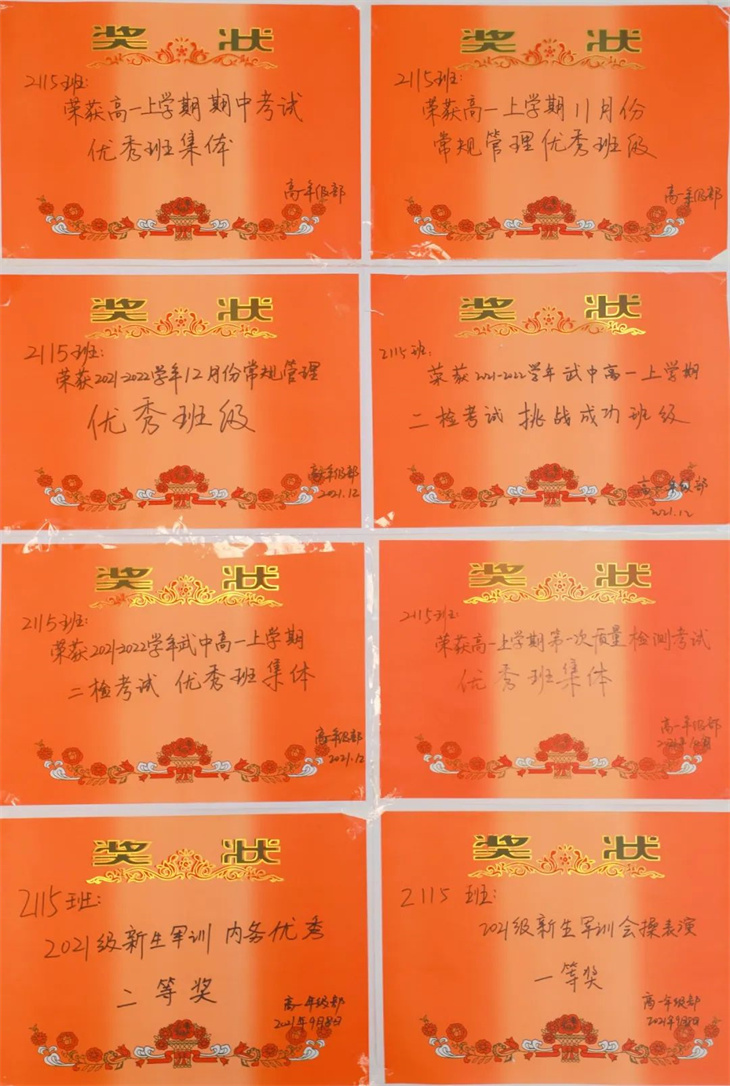 奖状
2115班:
荣获高一上学期期中考试
优秀班集体
高一年级部
奖状
2115班:
荣获高一上学期11月份
常规管理优秀班级
高一年级部
奖状
2115班:
荣获2021-2022学年12月份常规管理
优秀班级
高一年级部
2021.12
奖状
2115班:
荣获2021-2022学年武中高一上学期
二检考试 挑战成功班级
高一年级部
2021.12
奖状
2115班:
荣获2021-2022学年武中高一上学期
二检考试 优秀班集体
高一年级部
2021.12
奖状
2115班:
荣获高一上学期第一次质量检测考试
优秀班集体
高一年级部
奖状
2115班:
2021级新生军训 内务优秀
二等奖
高一年级部
2021年9月8日
奖状
2115 班:
2021级新生军训会操表演
一等奖
高一年级部
2021年9月8日